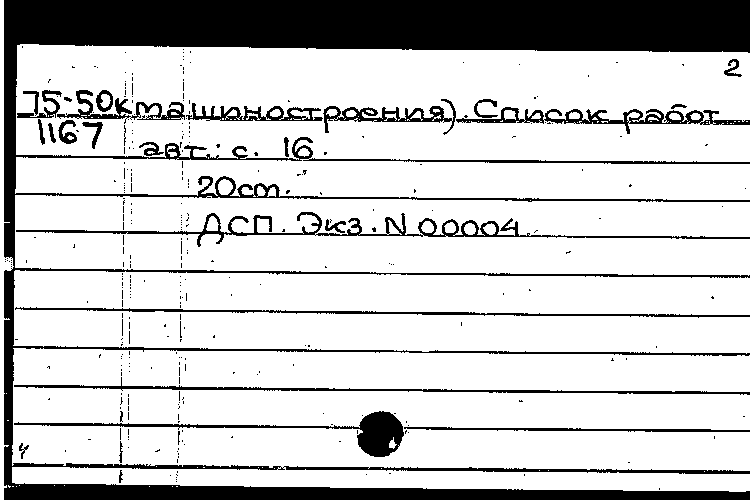 2
75-50к машиностроения). Список работ
1167 авт.: с. 16.
20 cm.
ДСП. Экз. N 00004
4